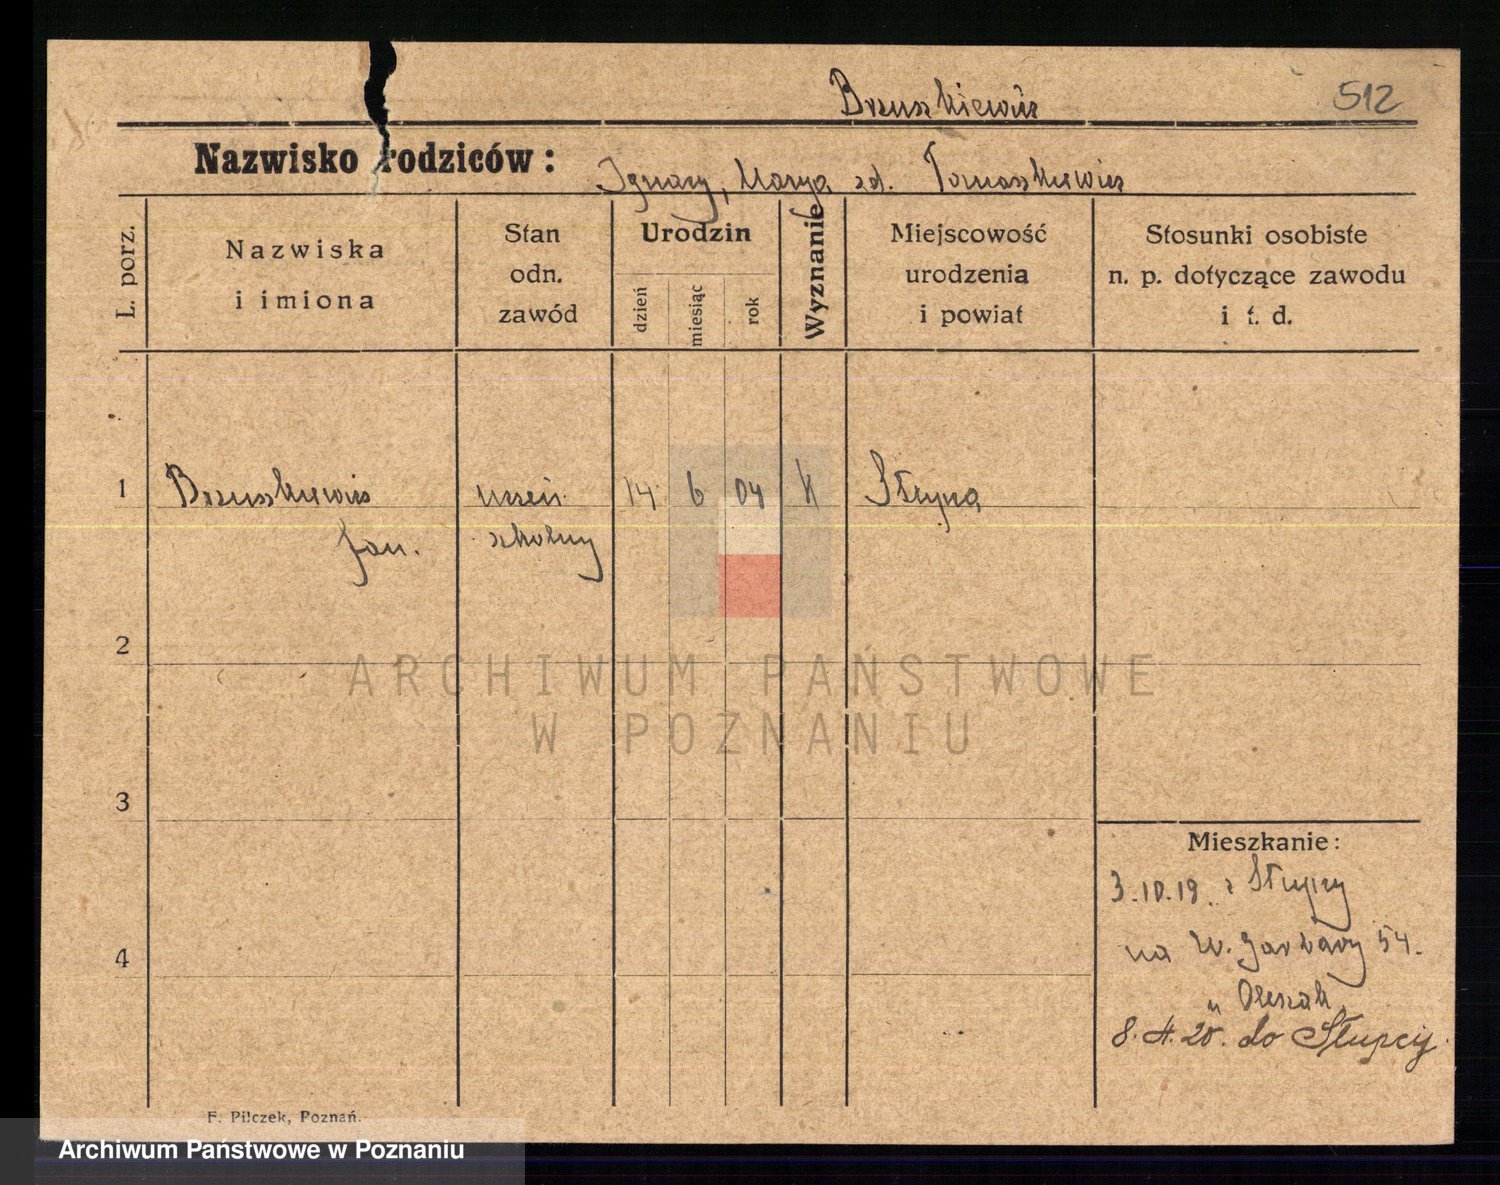 Brzuszkiewicz 512
Nazwisko rodziców: Ignacy, Marya zd. Tomaszkiewicz
L. porz.
Nazwiska
i imiona
Stan
odn.
zawód
Urodzin
dzień
miesiąc
rok
Wyznanie
Miejscowość
urodzenia
i powiat
Stosunki osobiste
n. p. dotyczące zawodu
i t. d.
1 Brzuszkiewicz uczeń 14 6 04 K Słupca
Jan. szkolny
2
3
4
Mieszkanie:
3.10.19. z Słupcy
na W. Garbary 54.
u
8. 20. do Słupcy.
F. Pilczek, Poznań.
ARCHIWUM PAŃSTWOWE
W POZNANIU
Archiwum Państwowe w Poznaniu